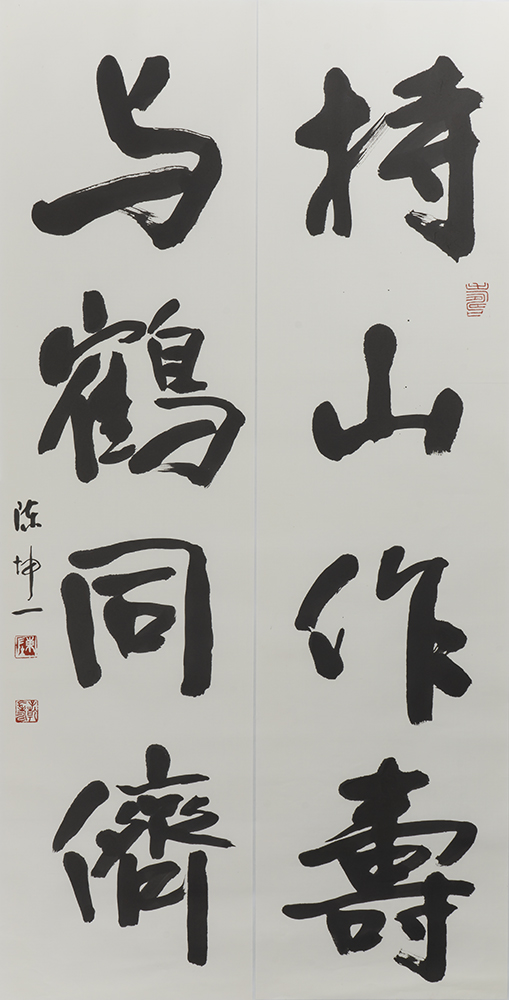 持山作壽
与鶴同儕
陈坤一